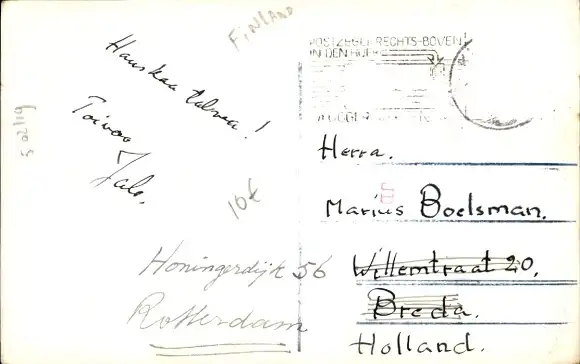 FINLAND
Hauskaa talvea!
Toivoo
Jalo.
10€
POSTZEGEL RECHTS-BOVEN
IN DEN HOEK
Herra.
Marius Boelsman.
Willemtraat 20.
Breda.
Holland.
Honingerdijk 56
Rotterdam